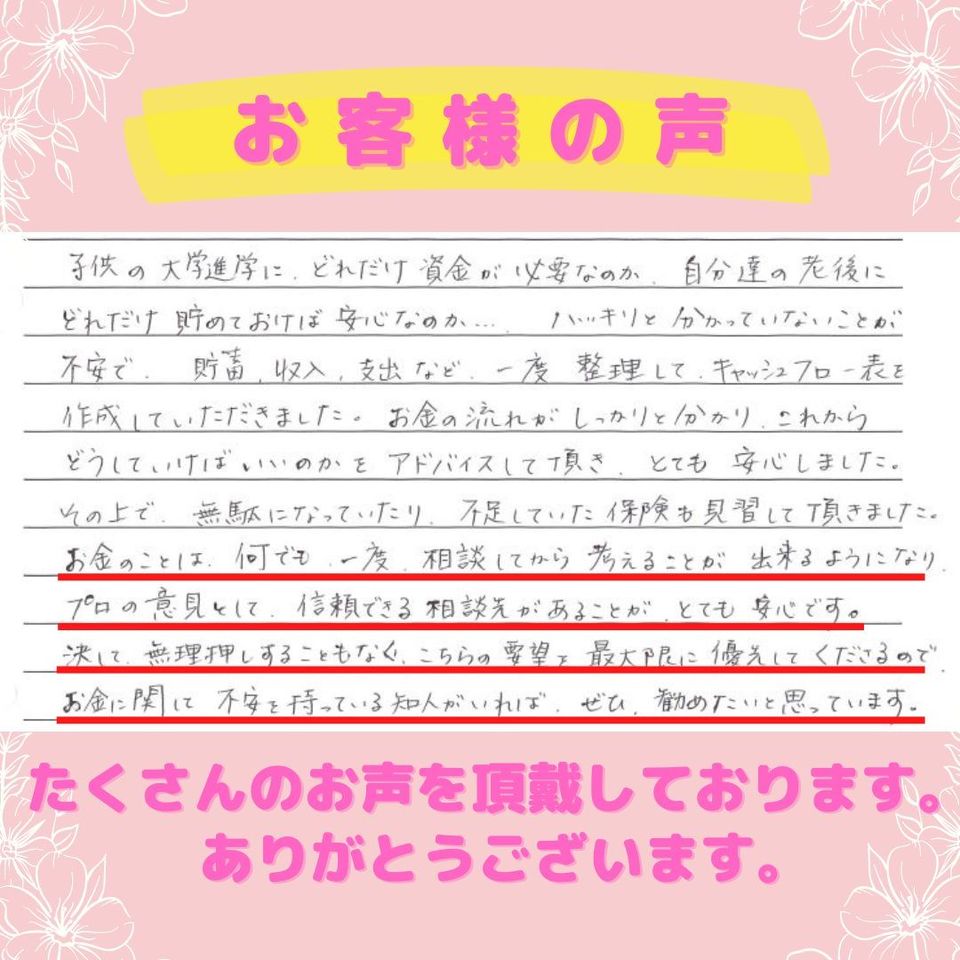 お客様の声
子供の大学進学に、どれだけ資金が必要なのか、自分達の老後に
どれだけ貯めておけば安心なのか…、ハッキリと分かっていないことが
不安で、貯蓄、収入、支出など、一度整理して、キャッシュフロー表を
作成していただきました。お金の流れがしっかりと分かり、これから
どうしていけばいいのかをアドバイスして頂き、とても安心しました。
その上で、無駄になっていたり、不足していた保険も見習して頂きました。
お金のことは、何でも、一度、相談してから考えることが出来るようになり、
プロの意見として、信頼できる相談先があることが、とても安心です。
決して、無理押しすることもなく、こちらの要望を最大限に優先してくださるので、
お金に関して不安を持っている知人がいれば、ぜひ、勧めたいと思っています。
たくさんのお声を頂戴しております。
ありがとうございます。